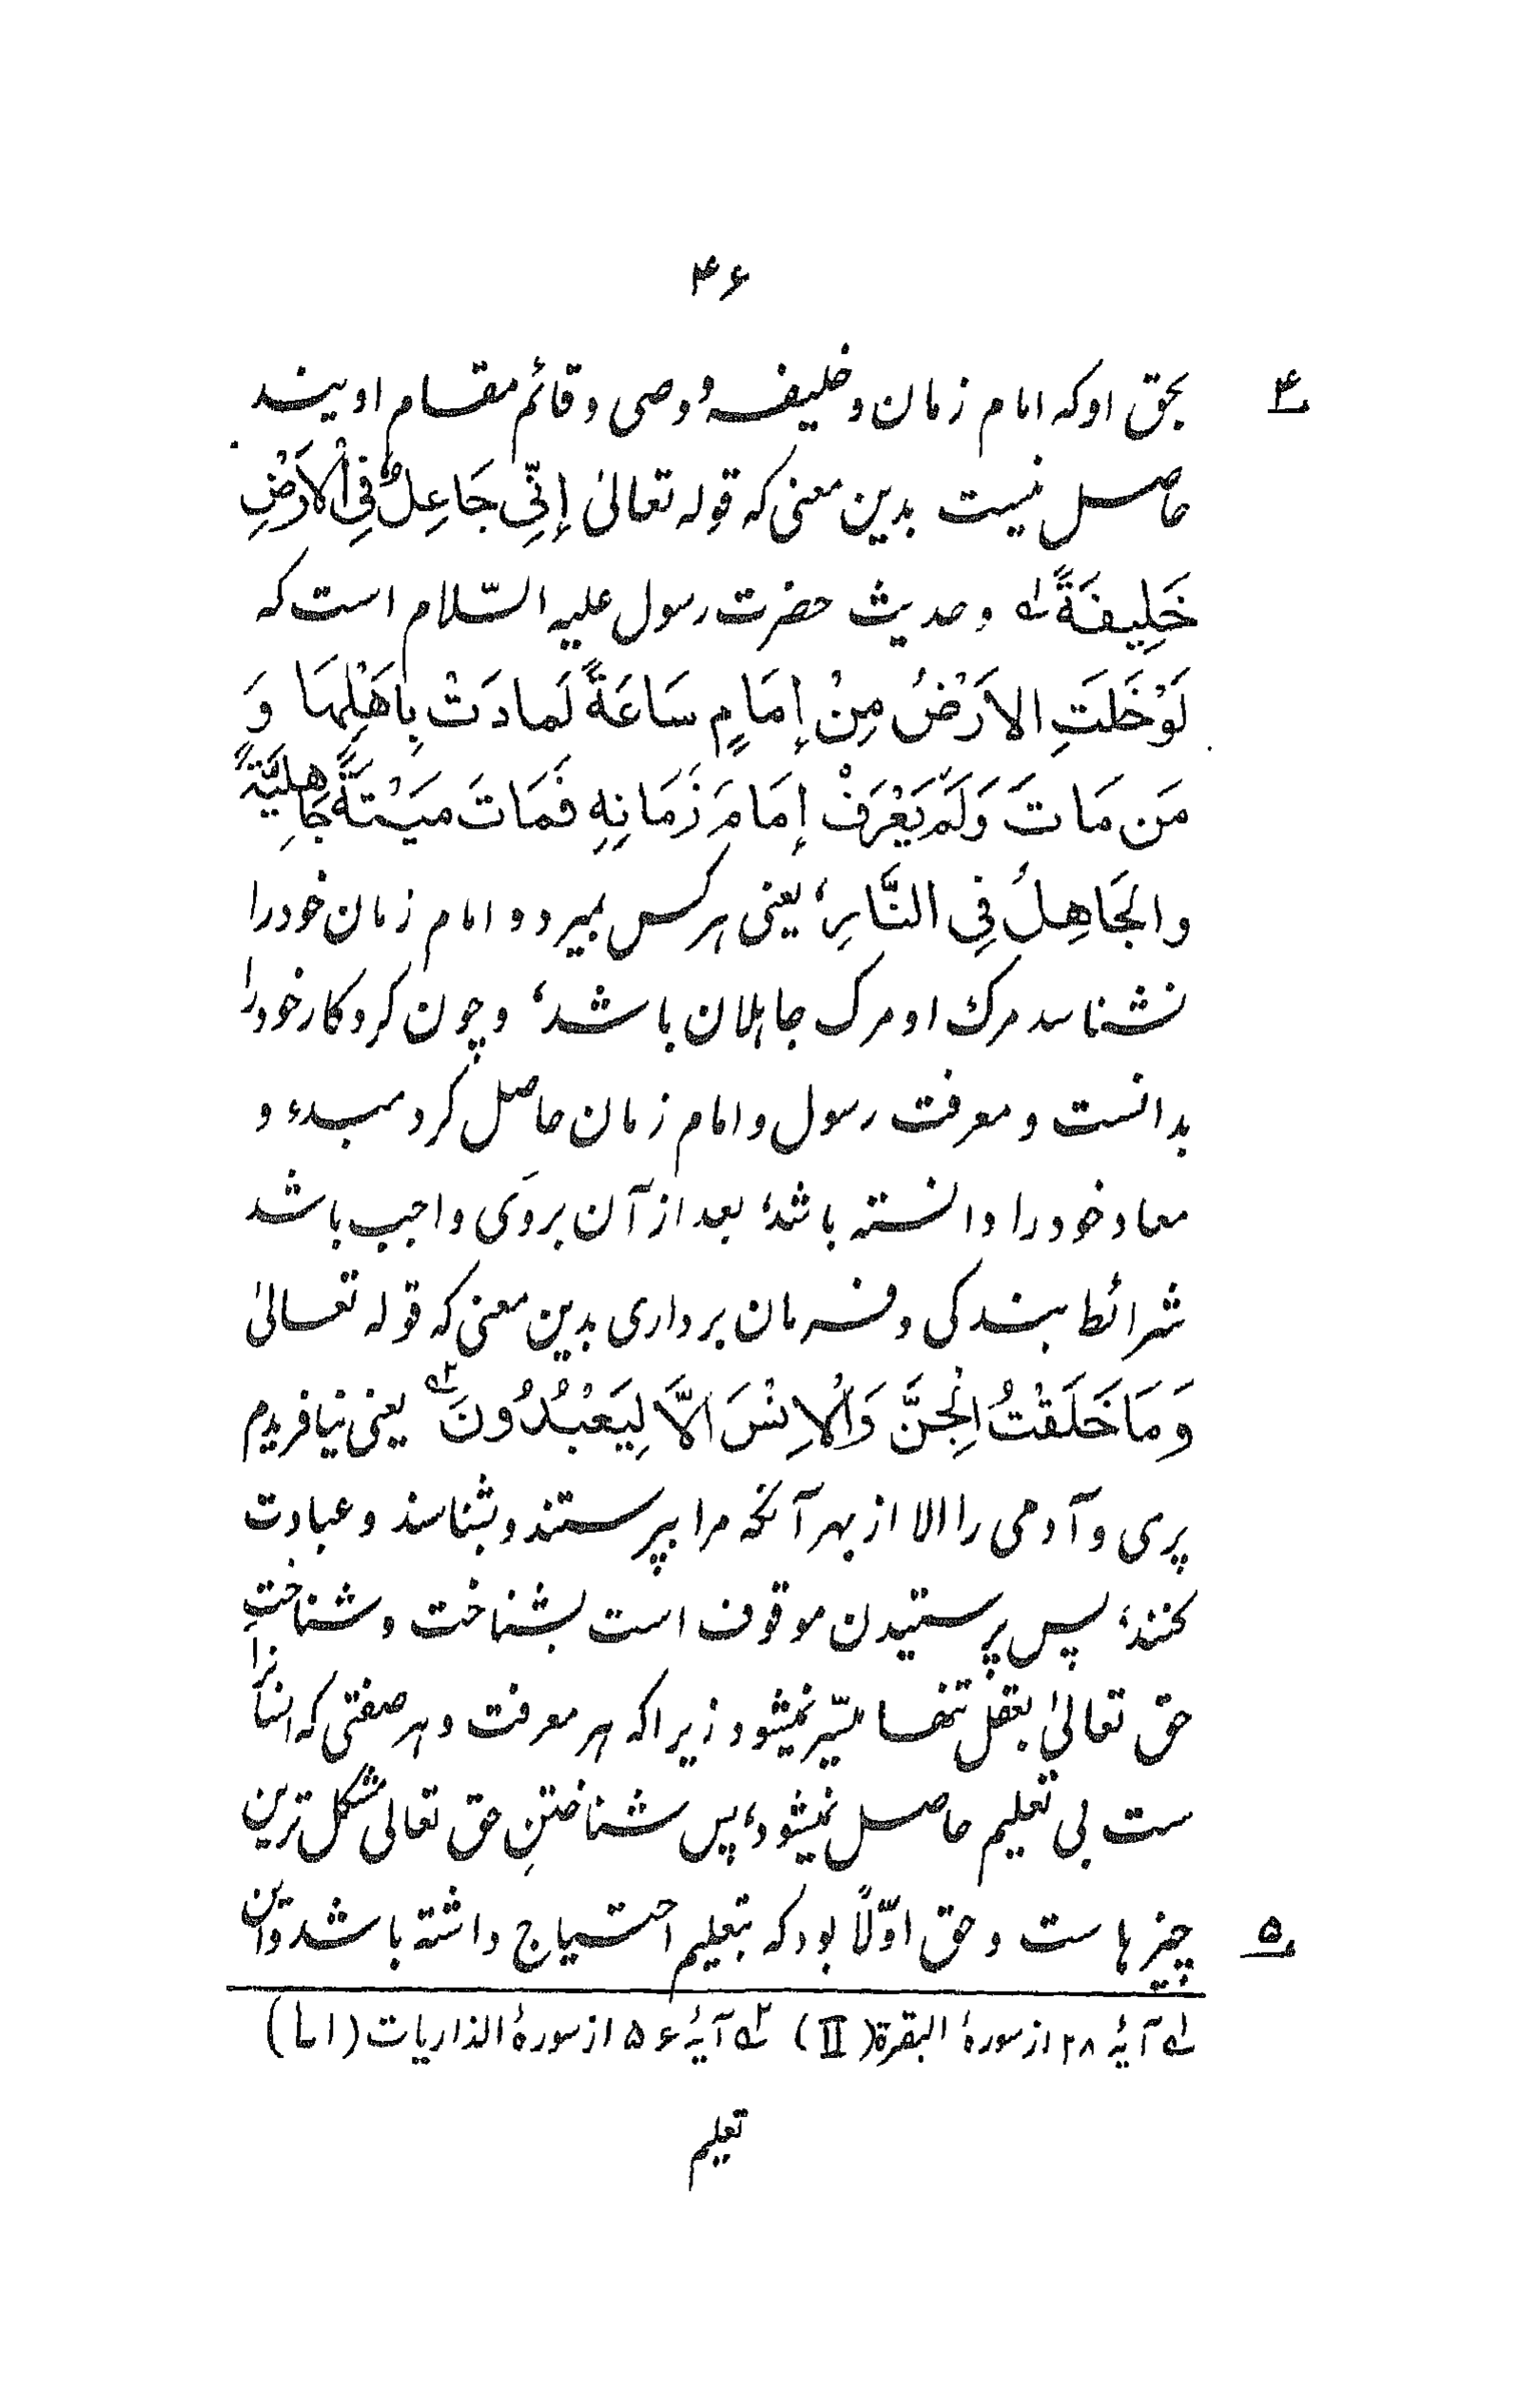 ۴۶
بحق او که امام زمان و خلیفه و وصی و قائم مقام اویند
۴
حاصل نیست بدین معنی که قوله تعالیٰ إِنِّي جَاعِلٌ فِي الْاَرْضِ
خَلِيفَةً ۱ و حدیث حضرت رسول علیه السّلام است که
لَوْخَلَتِ الاَرْضُ مِنْ إِمَامٍ سَاعَةً لَمادَتْ بِاَهْلِهَا وَ
مَن مَاتَ وَلَمْ يَعْرَفْ إِمَامَ زَمَانِهِ فَمَاتَ مَيْتَةً جَاهِلِيَّةً
والجَاهِلُ فِي النَّارِ، یعنی هر کس بمیرد و امام زمان خود را
نشناسد مرک او مرک جاهلان باشد، و چون کردکار خود را
بدانست و معرفت رسول و امام زمان حاصل کرد مبدء و
معاد خود را دانسته باشد، بعد از آن بروَی واجب باشد
شرائط بندکی و فرمان برداری بدین معنی که قوله تعالیٰ
وَمَا خَلَقْتُ الْجِنَّ وَالْاِنْسَ اِلَّا لِيَعْبُدُونَ ۲ یعنی نیافریدم
پری و آدمی را الا از بهر آنکه مرا بپرستند و بشناسند و عبادت
کنند، پس پرستیدن موقوف است بشناخت و شناختِ
حق تعالیٰ بعقل تنها میسّر نمیشود زیرا که هر معرفت و هر صفتی که انسانرا
ست بی تعلیم حاصل نمیشود، پس شناختنِ حق تعالی مشکل ترین
چیزهاست و حق اوّلاً بود که بتعلیم احتیاج داشته باشد و این
۵
۱ آیهٔ ۲۸ از سورهٔ البقرة (II) ۲ آیهٔ ۵۶ از سورهٔ الذاریات (۵۱)
تعلیم